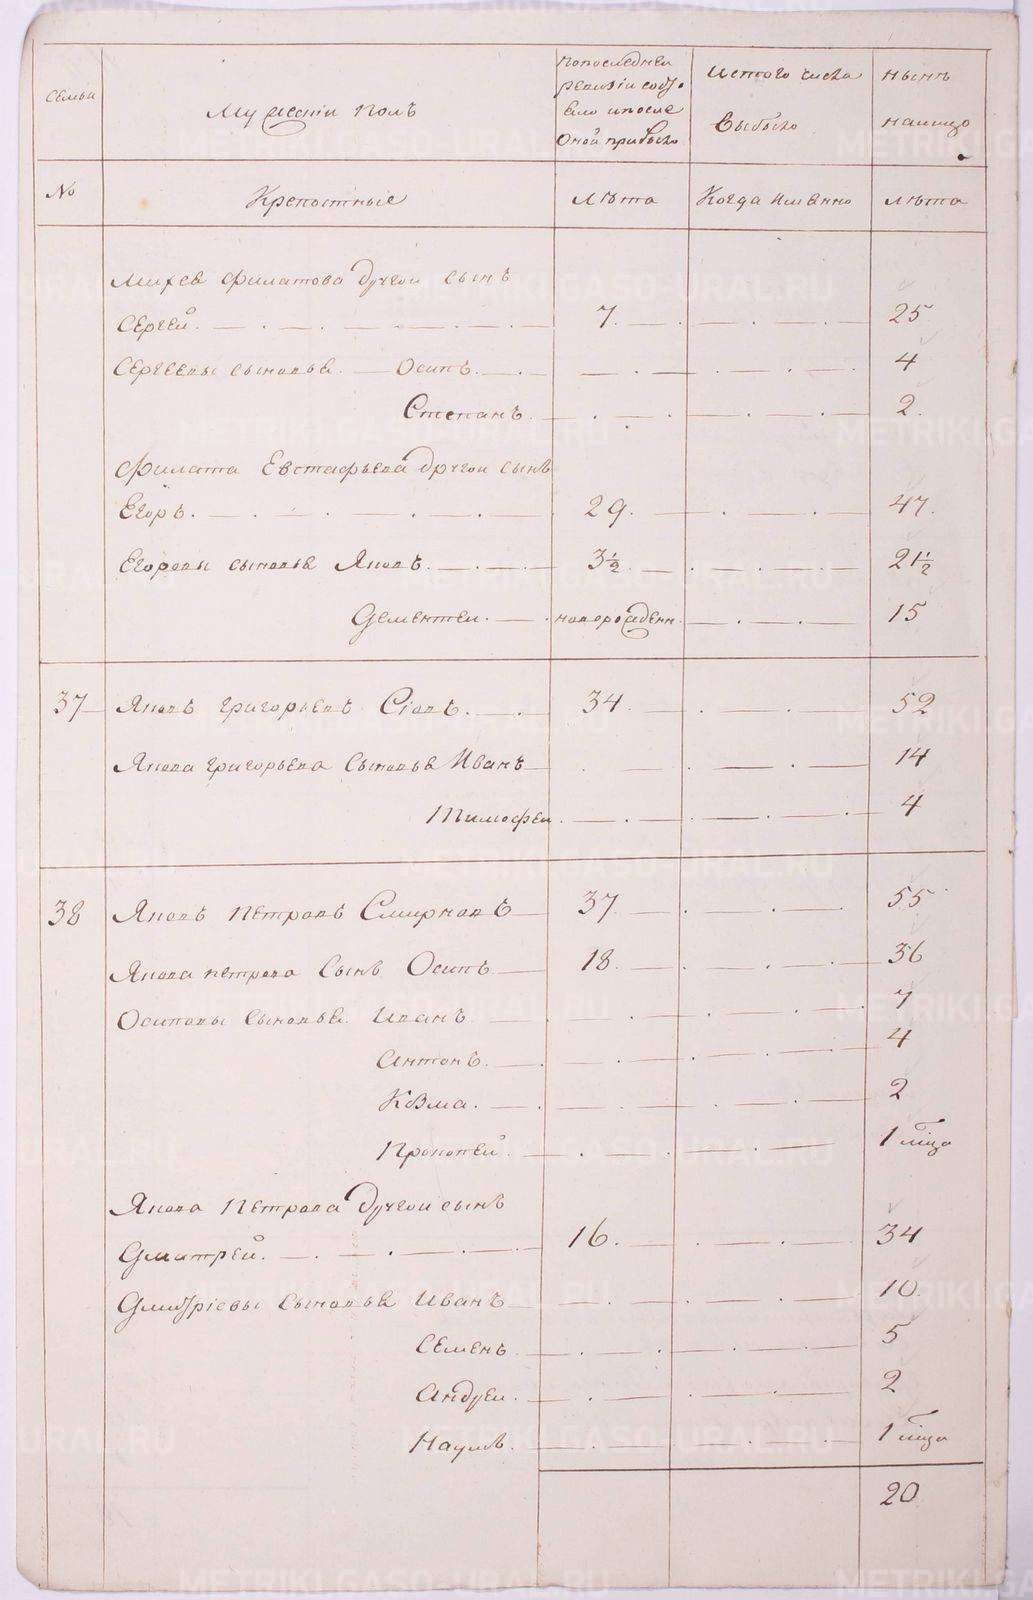 семьи
Мужескiй полъ
попоследней
ревизiи состо
яло ипосле
оной прибыло
Истого числа
выбыло
нынѣ
налицо
№
Крепостныѣ
лѣта
Когда имянно
лѣта
Михея Филатова другой сынъ
Сергей. 7. 25
Сергеевы сыновья Осипъ. 4
Степанъ. 2.
Филата Евстафьева другой сынъ
Егоръ. 29. 47.
Егоровы сыновья Яковъ. 3½ 21½
Дементей. новорожденн. 15
37 Яковъ Григорьевъ 34 52
Якова Григорьева сыновья Иванъ 14
Тимофей. 4
38 Яковъ Петровъ Смирновъ 37 55
Якова Петрова сынъ Осипъ 18. 36
Осиповы сыновья Иванъ 7
Антонъ. 4
Козма. 2
Прокопей. 1 мѣца
Якова Петрова другой сынъ
Дмитрей. 16. 34
Дмитрiевы сыновья Иванъ 10.
Семенъ 5
Андрей. 2
Наумъ. 1 мѣца
20
METRIKI.GASO-URAL.RU